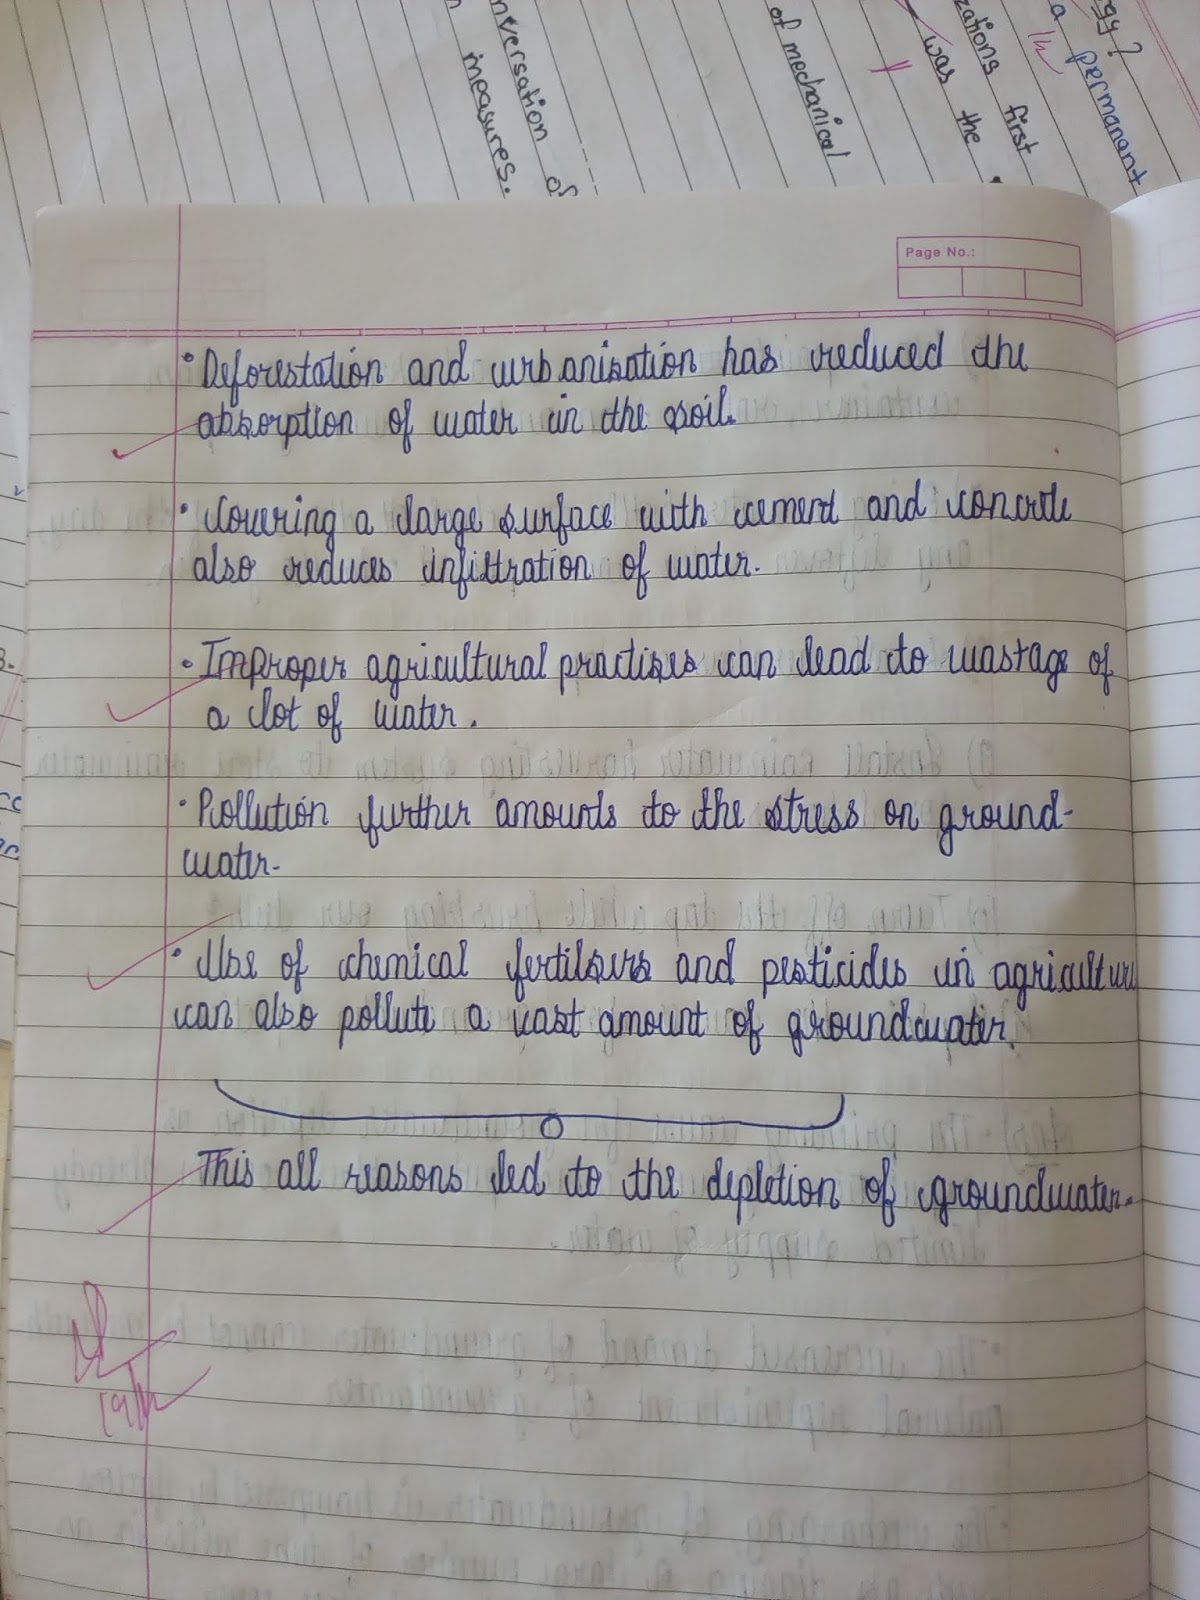 nversation of
measures.
of mechanical
zations first
was the
gy?
a permanant
Page No.:
• Deforestation and urbanisation has reduced the
absorption of water in the soil.
• Covering a large surface with cement and concrete
also reduces infiltration of water.
• Improper agricultural practises can lead to wastage of
a lot of water.
• Pollution further amounts to the stress on ground-
water.
• Use of chemical fertilsers and pesticides in agriculture
can also pollute a vast amount of groundwater.
This all reasons led to the depletion of groundwater.